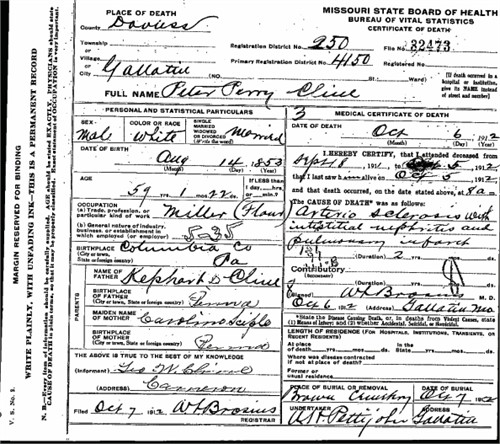 MISSOURI STATE BOARD OF HEALTH
BUREAU OF VITAL STATISTICS
CERTIFICATE OF DEATH
PLACE OF DEATH
County Daviess
Township
or
Village
or
City Gallatin
Registration District No. 250
File No. 32473
Primary Registration District No. 4150
Registered No.
(No. St.; Ward)
(If death occurred in a hospital or institution, give its NAME instead of street and number)
FULL NAME Peter Perry Cline
PERSONAL AND STATISTICAL PARTICULARS
SEX Male
COLOR OR RACE White
SINGLE MARRIED WIDOWED OR DIVORCED (Write the word) Married
DATE OF BIRTH
Aug 14 1853
(Month) (Day) (Year)
AGE
59 yrs. 1 mos. 22 ds.
If LESS than 1 day, hrs. or min.?
OCCUPATION
(a) Trade, profession, or particular kind of work Miller (Flour)
(b) General nature of industry, business, or establishment in which employed (or employer) 5-35
BIRTHPLACE
(City or town, State or foreign country)
Columbia Co
Pa
PARENTS
NAME OF FATHER Kephart D Cline
BIRTHPLACE OF FATHER
(City or town, State or foreign country) Penna
MAIDEN NAME OF MOTHER Caroline
BIRTHPLACE OF MOTHER
(City or town, State or foreign country) Penna
THE ABOVE IS TRUE TO THE BEST OF MY KNOWLEDGE
(Informant) Geo W
(ADDRESS) Cameron
Filed Oct 7 1912 W Brosius
REGISTRAR
3 MEDICAL CERTIFICATE OF DEATH
DATE OF DEATH
Oct 6 1912
(Month) (Day) (Year)
I HEREBY CERTIFY, that I attended deceased from
Sept 18 1911 to 5 1912
that I last saw him alive on Oct 5 1912
and that death occurred, on the date stated above, at 8 a m.
The CAUSE OF DEATH* was as follows:
Arterio sclerosis with
intestitial nephritis and
pulmonary infarct
131-B
(Duration) 2 yrs. mos. ds.
Contributory
(Duration) yrs. mos. ds.
W Brosius M. D.
Oct 6 1912 (Address) Gallatin Mo
*State the Disease Causing Death, or, in deaths from Violent Causes, state (1) Means of Injury; and (2) whether Accidental, Suicidal, or Homicidal.
LENGTH OF RESIDENCE (FOR HOSPITALS, INSTITUTIONS, TRANSIENTS, OR RECENT RESIDENTS)
At place of death yrs. mos. ds. In the State yrs. mos. ds.
Where was disease contracted if not at place of death?
Former or usual residence
PLACE OF BURIAL OR REMOVAL
Brown
DATE OF BURIAL
Oct 7 1912
UNDERTAKER
Pettijohn
ADDRESS
Gallatin
MARGIN RESERVED FOR BINDING
WRITE PLAINLY, WITH UNFADING INK—THIS IS A PERMANENT RECORD
V. S. No. 1.